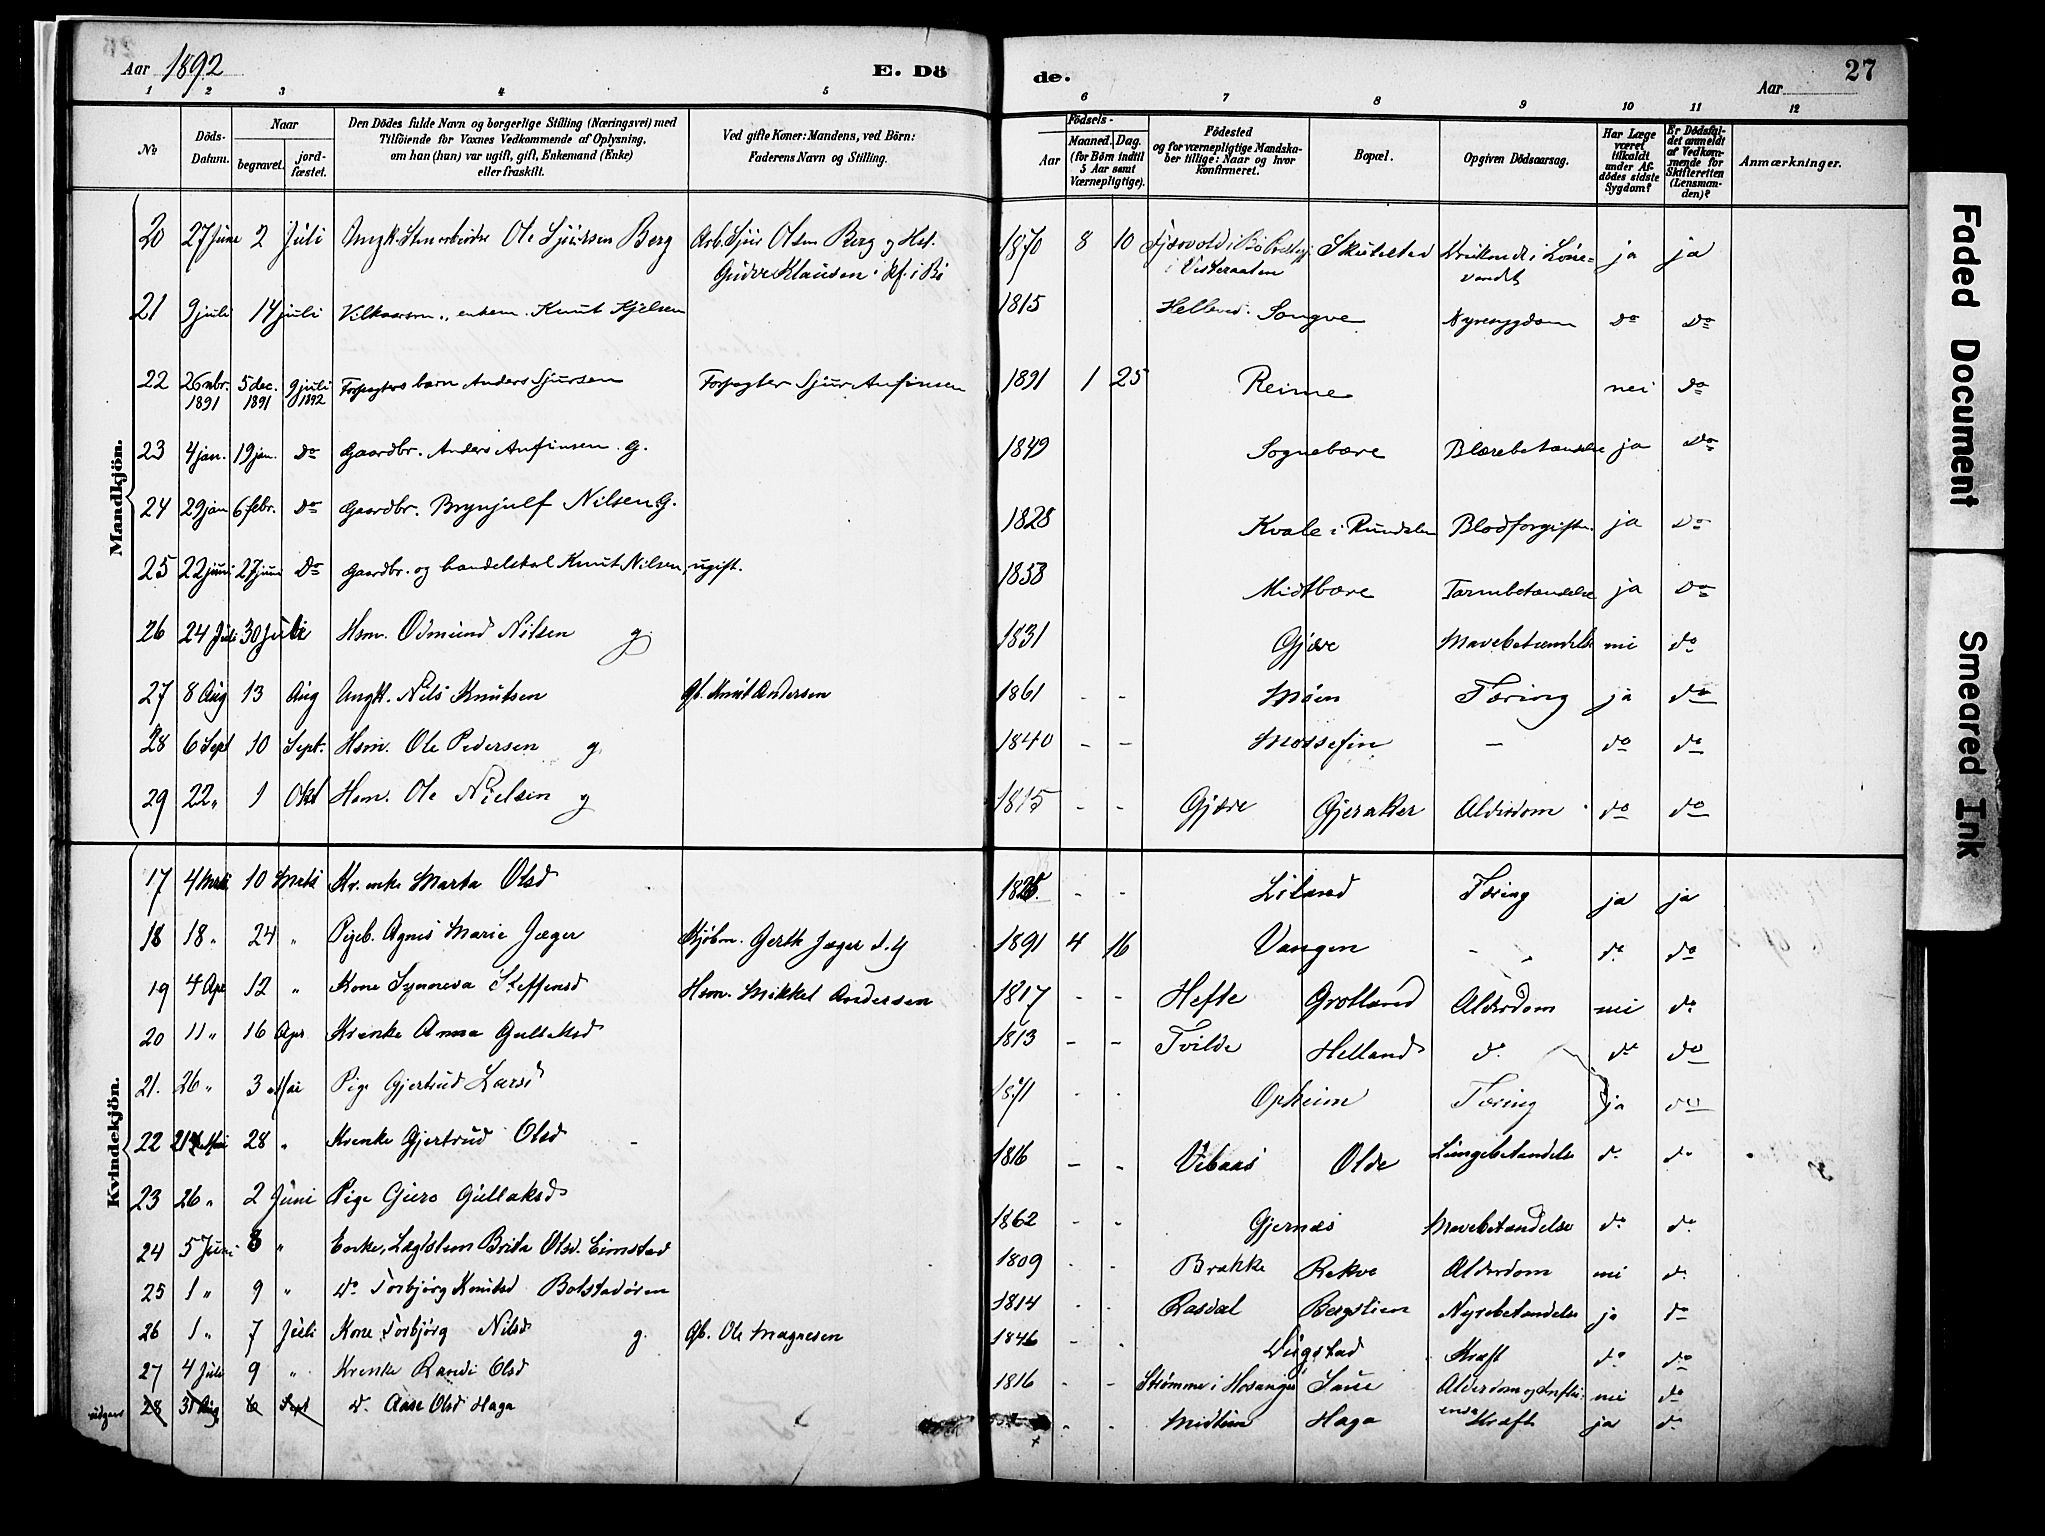 Aar 1892 E. Dö
de. Aar 27
1 2 3 4 5 6 7 8 9 10 11 12
No
Döds-Datum.
Naar
begravet. jord-fæstet.
Den Dödes fulde Navn og borgerlige Stilling (Næringsvei) med
Tilföiende for Voxnes Vedkommende af Oplysning,
om han (hun) var ugift, gift, Enkemand (Enke)
eller fraskilt.
Ved gifte Koner: Mandens, ved Börn:
Faderens Navn og Stilling.
Födsels-
Aar Maaned. Dag.
(for Börn indtil
5 Aar samt
Værnepligtige).
Födested
og for værnepligtige Mandska-
ber tillige: Naar og hvor
konfirmeret.
Bopæl.
Opgiven Dödsaarsag.
Har Læge
været
tilkaldt
under Af-
dödes sidste
Sygdom?
Er Dödsfal-
det anmeldt
af Vedkom-
mende for
Skifteretten
(Lensman-
den)?
Anmærkninger.
Mandkjön.
20 27 June 2 Juli Ungk. Stenarbeider Ole Sjursen Berg Arb. Sjur Olsen Berg og Hst. 1870 8 10 Skutestad Druknede i Lone- ja ja
Gudve Klausen i Bö i Vesteraalen vandet
21 9 juli 14 juli enkem. Knut Kjelsen 1815 Helleved. Songve Nyresygdom do do
22 26 nbr. 5 dec. 9 juli Forpagters barn Anders Sjursen Forpagter Sjur Anfinsen 1891 1 25 Reime nei do
1891 1891 1892
23 4 jan. 19 jan. do Gaardbr. Anders Anfinsen. g. 1849 Sognebære Blærebetændelse ja do
24 29 jan 6 febr. do Gaardbr. Brynjulf Nilsen G. 1828 Kvale i Rundalen Blodforgiftn. ja do
25 22 juni 27 juni do Gaardbr. og handelskal Knut Nilsen, ugift. 1858 Midtbære Tarmbetændelse ja do
26 24 Juli 30 Juli Hsm. Odmund Nilsen g. 1831 Gjære Mavebetændelse nei do
27 8 Aug 13 Aug Ungk. Nils Knutsen Gb. Knut Andersen 1861 - - Möen Tæring ja do
28 6 Sept 10 Sept. Hsm. Ole Pedersen g. 1840 - - Mossefin - do do
29 22 " 1 Okt Hsm. Ole Nielsen g 1815 - - Gjære Gjeraker Alderdom do do
Kvindekjön.
17 4 Mars 10 Mars Kv. enke Marta Olsd - - Liland Tæring ja ja
18 18 " 24 " Pigeb. Agnes Marie Jæger Kjöbm. Gerth Jæger d. y 1891 4 16 Vangen - do do
19 4 Apr 12 " Kone Synneva Steffensd Hsm. Mikkel Andersen 1817 - - Hefte Grotland Alderdom nei do
20 11 " 16 Apr Kvenke Anna Gullaksd 1813 - - Tvilde Helland do do do
21. 26 " 3 Mai Pige Gjertrud Larsd 1871 - - Opheim Tæring ja do
22 21 Mai 28 " Kvenke Gjertrud Olsd 1816 - - Vibaas Olde Lungebetændelse do do
23 26 " 2 Juni Pige Guro Gullaksd 1862 - - Gjernæs Mavebetændelse do do
24 5 Juni 8 " Enke, Lægdslem Brita Olsd. Eimstad 1809 - - Brakke Rekve Alderdom nei do
25 1 " 9 " do Torbjörg Knutsd Bolstadören 1814 - - Rasdal Bergstien Nyrebetændelse ja do
26 1 " 7 Juli Kone Torbjörg Nilsd g. Gb. Ole Magnesen 1846 - - Dugstad Kræft do do
27 4 Juli 9 " Kvenke Randi Olsd 1816 - - Strömme i Hosanger Saue Alderdom og Influ- nei do
enza
udgaar 28 31 Aug 6 Sept do Aase Olsd Haga - - Midtun Haga Kræft ja do
Faded Document
Smeared Ink